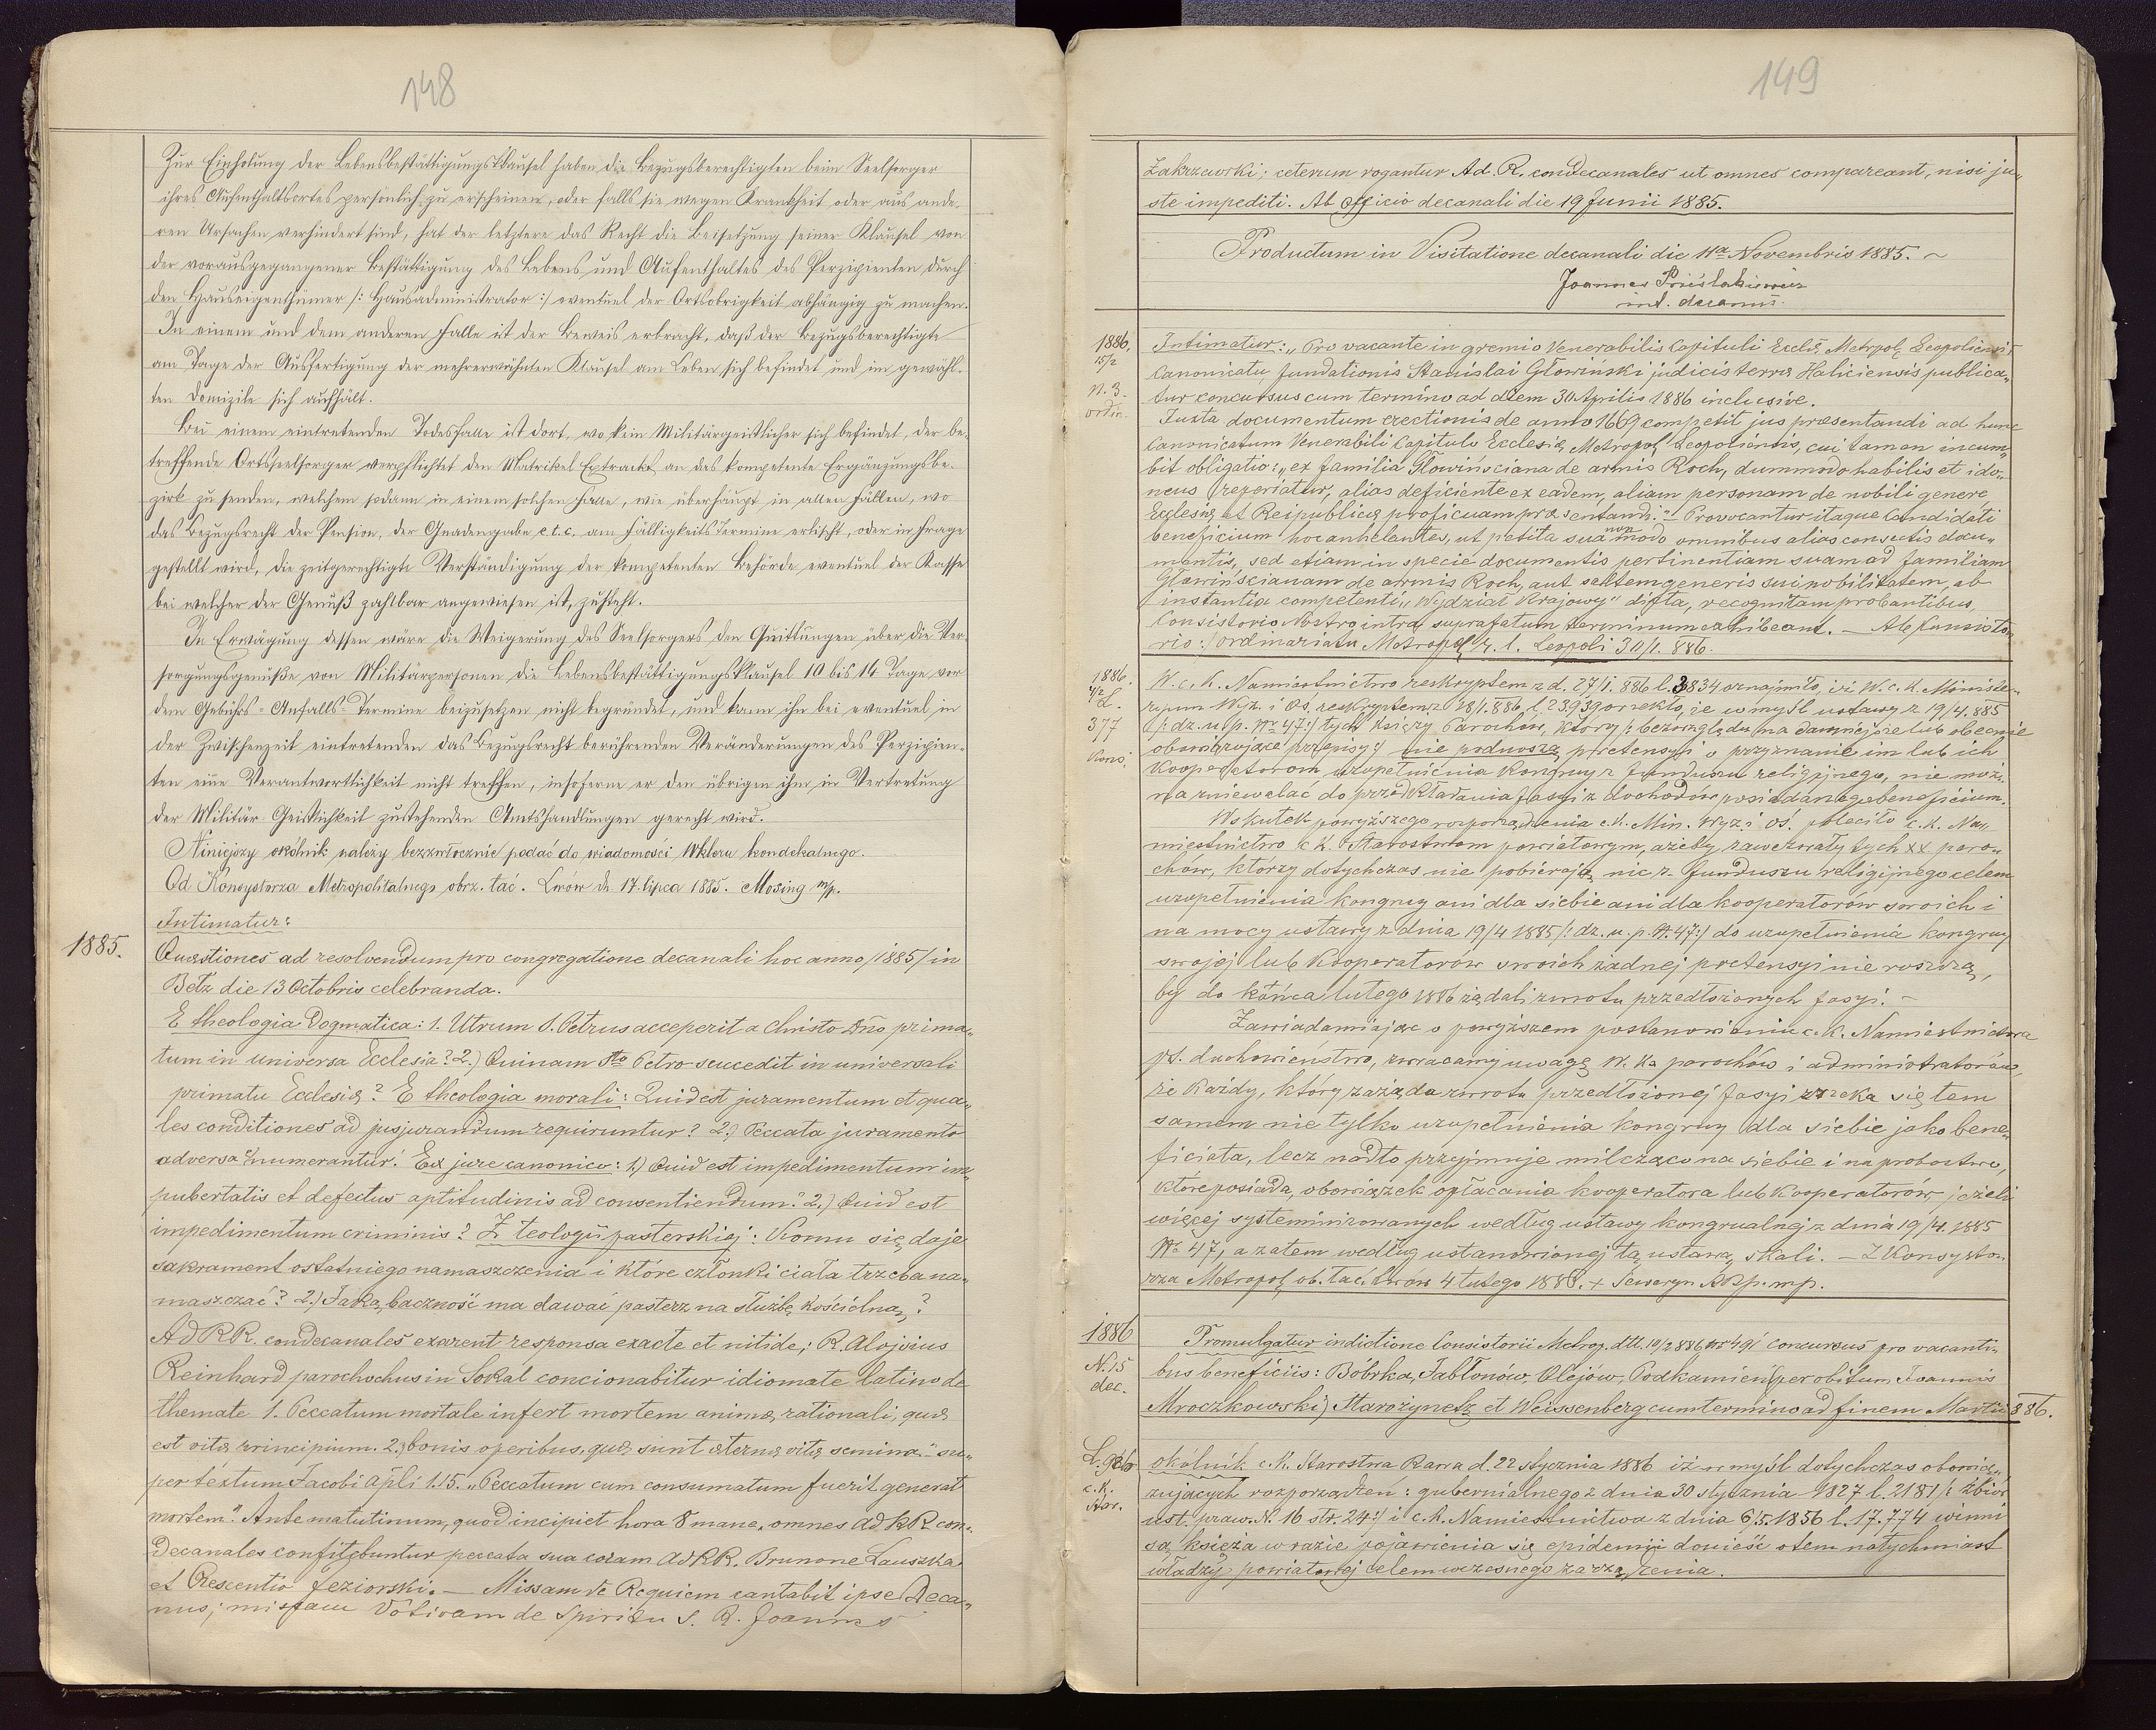 148
Zur Einholung der Lebensbestättigungsklausel haben die Bezugsberechtigten beim Seelsorger
ihres Aufenthaltsortes persönlich zu erscheinen, oder falls sie wegen Krankheit oder aus ande-
ren Ursachen verhindert sind, hat der letztere das Recht die Beisetzung seiner Klausel von
der vorausgegangener Bestättigung des Lebens und Aufenthaltes des Perzipienten durch
den Hauseigenthümer /: Hausadministrator :/ eventuel der Ortsobrigkeit abhängig zu machen.
In einem und dem anderen Falle ist der Beweis erbracht, daß der Bezugsberechtigte
am Tage der Ausfertigung der mehrerwähnten Klausel am Leben sich befindet und im gewähl-
ten Domizile sich aufhält.
Bei einem eintretenden Todesfalle ist dort, wo kein Militärgeistlicher sich befindet, der be-
treffende Ortsseelsorger verpflichtet den Matrikel Extrackt an das kompetente Ergänzungsbe-
zirk zu senden, welchem sodann in einem solchen Falle, wie überhaupt in allen Fällen, wo
das Bezugsrecht der Pension, der Gnadengabe e.t.c. am Fälligkeits Termine erlischt, oder in Frage
gestellt wird, die zeitgerechtigte Verständigung der kompetenten Behörde eventuel der Kasse
bei welcher der Genuß zahlbar angewiesen ist, zusteht.
In Erwägung dessen wäre die Weigerung des Seelsorgers den Quittungen über die Ver-
sorgungsgenüße von Militärpersonen die Lebensbestättigungsklausel 10 bis 14 Tage vor
dem Gebührs-Anfalls-Termine beizusetzen nicht begründet, und kann ihn bei eventuel in
der Zwischenzeit eintretenden das Bezugsrecht berührenden Veränderungen des Perzipien-
ten eine Verantwortlichkeit nicht treffen, insoferne er den übrigen ihm in Vertretung
der Militär-Geistlichkeit zustehenden Amtshandlungen gerecht wird.
Niniejszy okólnik należy bezzwłocznie podać do wiadomości Wkleru kondekalnego.
Od Konsystorza Metropolitalnego obrz. łać. Lwów d. 17. lipca 1885. Mosing m/p.
Intimatur:
1885.
Quæstiones ad resolvendum pro congregatione decanali hoc anno /1885/ in
Bełz die 13 Octobris celebranda.
E theologia Dogmatica: 1. Utrum S. Petrus acceperit a Christo Dño prima„
tum in universa Ecclesia? 2.) Quinam Sto Petro succedit in universali
primatu Ecclesiæ? E theologia morali: Quid est juramentum et qua„
les conditiones ad jusjurandum requiruntur? 2.) Peccata juramento
adversa enumerantur. Ex jure canonico: 1.) Quid est impedimentum im„
pubertatis et defectus aptitudinis ad consentiendum? 2.) Quid est
impedimentum criminis? Z teologii pasterskiej: Komu się daje
sakrament ostatniego namaszczenia i które członki ciała trzeba na„
maszczać? 2.) Jaką baczność ma dawać pasterz na służbę kościelną?
Ad RR. condecanales exarent responsa exacte et nitide; R. Alojsius
Reinhard parochochus in Sokal concionabitur idiomate latino de
themate 1. Peccatum mortale infert mortem animæ rationali, quæ
est vitæ principium. 2.) bonis operibus, quæ sunt æternæ vitæ semina." su„
per textum Jacobi apli 1.15. „Peccatum cum consumatum fuerit generat
mortem". Ante matutinum, quod incipiet hora 8 mane, omnes ad RR con„
decanales confitebuntur peccata sua coram ad RR. Brunone Lauszka
et Crescentio Jeziorski. — Missam de Requiem cantabit ipse Deca„
nus; missam Votivam de Spiritu S. R. Joannes
149
Zakrzewski; ceterum rogantur Ad. R. condecanales ut omnes compareant, nisi ju„
ste impediti. Ab officio decanali die 19 Junii 1885.
Productum in Visitatione decanali die 11a Novembris 1885. ~
Joannes
int. decanus.
1886.
15/2
N. 3.
ordin.
Intimatur: „Pro vacante in gremio Venerabilis Capituli Eccle Metrpol Leopoliensis
Canonicatu fundationis Stanislai Głowinski judicis terræ Haliciensis publica„
tur concursus cum termino ad diem 30 Aprilis 1886 inclusive.
Juxta documentum erectionis de anno 1669 competit jus præsentandi ad hunc
Canonicatum Venerabili Capitulo Ecclesiæ Metropol Leopoliensis, cui tamen incum„
bit obligatio: „ex familia Głowińsciana de armis Roch, dummodo habilis et ido„
neus reperiatur, alias deficiente ex eadem, aliam personam de nobili genere
Ecclesiæ et Reipublicæ proficuam præsentandi." Provocantur itaque Candidati
beneficium hoc anhelantes, ut petita sua non modo omnibus alias consuetis docu„
mentis, sed etiam in specie documentis pertinentiam suam ad familiam
Głowińscianam de armis Roch, aut saltem generis sui nobilitatem, ab
instantia competenti „Wydział Krajowy" dicta, recognitam probantibus,
Consistorio Nostro intra suprafatum terminum exhibeant. — Ab Consisto„
rio: /ordinariatu Metropol r. l. Leopoli 30/1. 886.
1886.
4/2
L.
377
Kons.
W. c. k. Namiestnictwo reskryptem z d. 27/1. 886 l. 3834 oznajmiło, iż W. c. k. Ministe„
ryum Wyz. i Oś. reskryptem z 18/1. 886 l. 23939 orzekło, że w myśl ustawy z 19/4. 885
/: dz. u. p. Nr 47:/ tych księży Parochów, którzy /: bez względu na dawniejsze lub obecnie
obowiązujące przepisy:/ nie podnoszą pretensyj o przyznanie im lub ich
Kooperatorom uzupełnienia Kongruy z funduszu religijnego, nie moż„
na zniewalać do przedkładania fasyi z dochodów posiadanego beneficium.
Wskutek powyższego rozporządzenia c. k. Min. Wyz. i Oś. poleciło c. k. Na„
miestnictwo c. k. Starostwom powiatowym, ażeby zawezwały tych XX. paro„
chów, którzy dotychczas nie pobierają nic z funduszu religijnego celem
uzupełnienia kongruy ani dla siebie ani dla kooperatorów swoich i
na mocy ustawy z dnia 19/4 1885 /: dz. u. p. N. 47:/ do uzupełnienia kongruy
swojej lub Kooperatorów swoich żadnej pretensyi nie roszczą,
by do końca lutego 1886 żądali zwrotu przedłożonych fasyi. —
Zawiadamiając o powyższem postanowieniu c. k. Namiestnictwa
W. duchowieństwo, zwracamy uwagę W. Ks parochów i administratorów,
że każdy, który zażąda zwrotu przedłożonej fasyi zrzeka się tem
samem nie tylko uzupełnienia kongruy dla siebie jako bene„
ficiata, lecz nadto przyjmuje milcząco na siebie i na probostwo,
które posiada, obowiązek opłacania kooperatora lub Kooperatorów, jeżeli
więcej systeminizowanych według ustawy kongrualnej z dnia 19/4. 1885
Nr 47, a zatem według ustanowionej tą ustawą skali. — Z Konsysto„
rza Metropol. ob. łać. Lwów 4 lutego 1886. + Seweryn mp.
1886
N. 15
dec.
Promulgatur indictione Consistorii Metrop. dtt. 10/2 886 Nr 491 concursus pro vacanti„
bus beneficiis: Bóbrka, Jabłonów, Olejów, Podkamień (per obitum Joannis
Mroczkowski) Starożynetz et Weissenberg cum termino ad finem Martii 886.
c. k.
Star.
okólnik c. k. Starostwa Rawa d. 22 stycznia 1886 iż w myśl dotychczas obowią„
zujących rozporządzeń: gubernialnego z dnia 30 stycznia 1827 l. 2181 /: Zbiór
ust. praw. N. 16 str. 24:/ i c. k. Namiestnictwa z dnia 6/5. 1856 l. 17.774 winni
są księża w razie pojawienia się epidemii donieść o tem natychmiast
władzy powiatowej celem wczesnego zarządzenia.